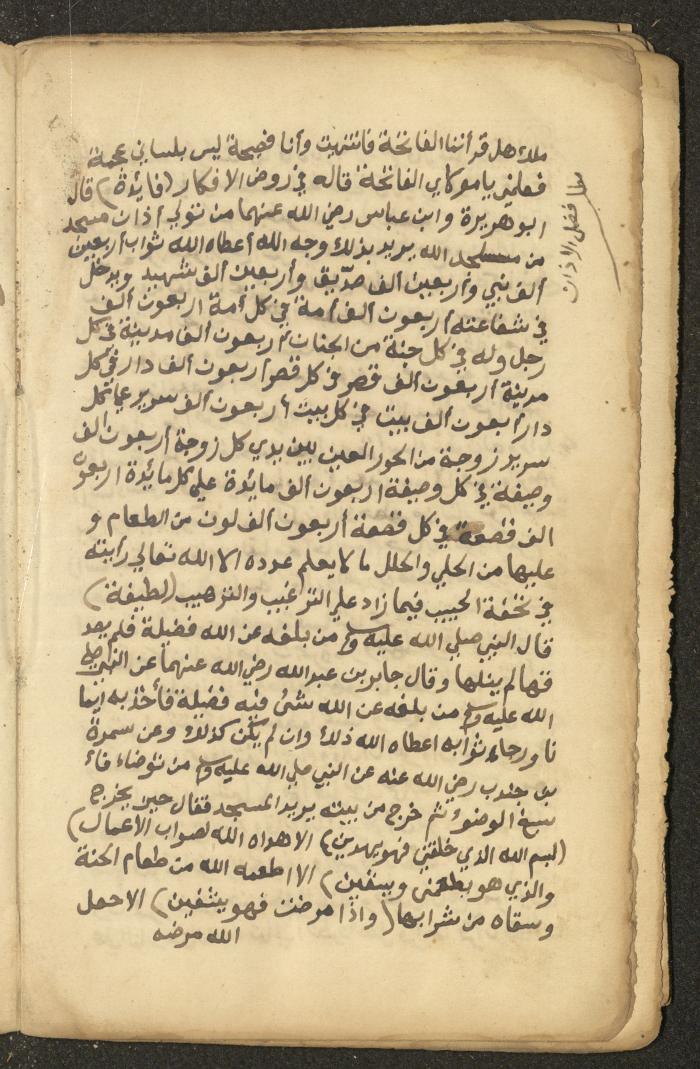 ملاء هل قرأتنا الفاتحة فانتهيت وأنا فصيحة ليس بلساني عجمة
فعلمني يا مولاي الفاتحة قاله في روض الافكار (فايدة) قال
ابو هريرة وابن عباس رضي الله عنهما من تولي أذان مسجد
من مسجد الله يريد بذلك وجه الله أعطاه الله ثواب أربعين
ألف نبي وأربعين ألف صدّيق وأربعين ألف شهيد ويدخل
في شفاعته أربعون ألف أمة في كل أمة اربعون ألف
رجل وله في كل جنة من الجنات أربعون ألف مدينة في كل
مدينة أربعون ألف قصر في كل قصر أربعون ألف دار في كل
دار أبعون ألف بيت في كل بيت أربعون ألف سرير علي كل
سرير زوجة من الحور العين بين يدي كل زوجة أربعون ألف
وصيفة في كل وصيفة اربعون ألف مائدة علي كل مائدة اربعون
الف قصعة في كل قصعة أربعون ألف لون من الطعام و
عليها من الحلي والحلل ما لا يعلم عدده الا الله تعالي رأيته
في تحفة الحبيب فيما زاد علي الترغيب والترهيب (لطيفة)
قال النبي صلي الله عليه وسلم من بلغه عن الله فضيلة فلم يصد
قها لم ينلها وقال جابر بن عبد الله رضي الله عنهما عن النبي صلي
الله عليه وسلم من بلغه عن الله شئ فيه فضيلة فأخذ به ايما
نا ورجاء ثوابه اعطاه الله ذلك وان لم يكن كذلك وعن سمرة
بن جندب رضي الله عنه عن النبي صلي الله عليه وسلم من توضاء فأ
سبغ الوضوء ثم خرج من بيته يريد المسجد فقال حين يخرج
(بسم الله الذي خلقني فهو يهدين) الا هداه الله لصواب الاعمال)
والذي هو يطعمني ويسقين) الا اطعمه الله من طعام الجنة
وسقاه من شرابها (واذا مرضت فهو يشفين) الا جعل
الله مرضه
مطلب فضل الاذان